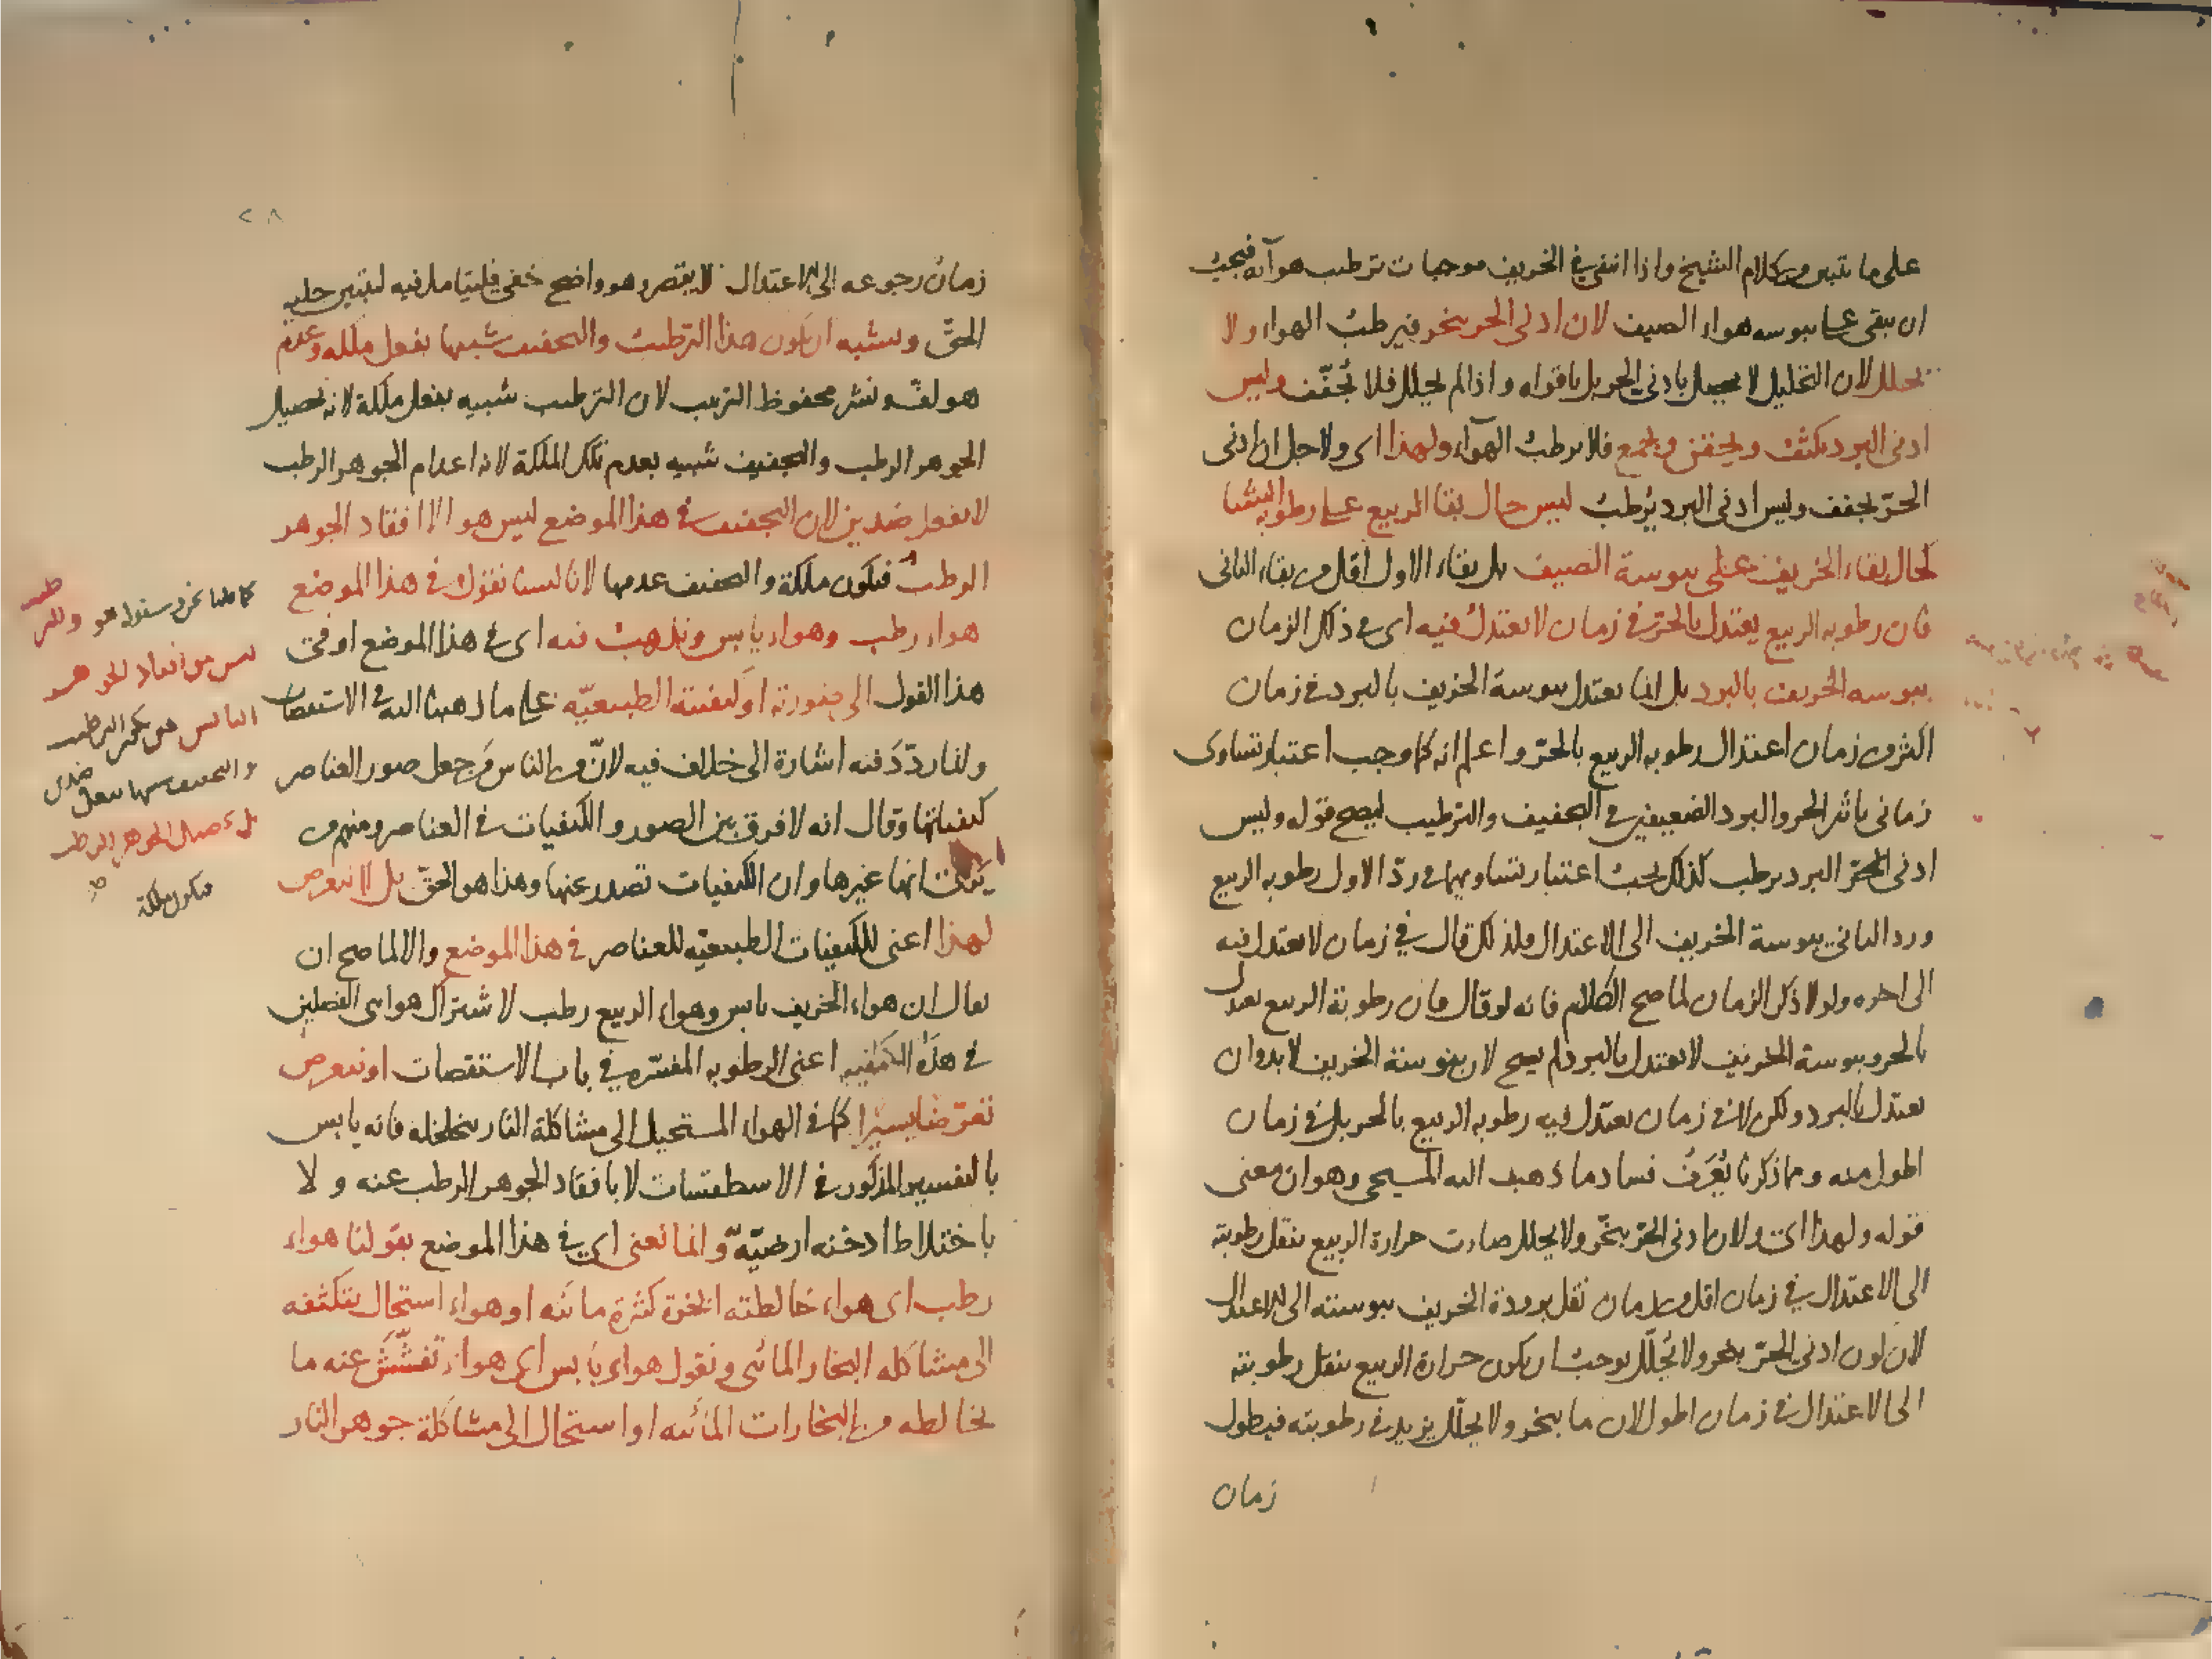 على ما تبين من كلام الشيخ واذا انتفى في الخريف موجبات ترطيب هوائه فيجب
ان يبقى على يبوسه هواء الصيف لان ادنى الحر يبخر فيرطب الهواء ولا
يحلل لان التحليل لا يحصل بادنى الحر بل باقواه واذا لم يحلل فلا تجفف وليس
ادنى البرد يكثف ويحقن ويجمع فلا يرطب الهواء ولهذا اى ولاجل ان ادنى
الحر يجفف وليس ادنى البرد يرطب ليس حال بقا الربيع على رطوبه الشتا
كحال بقاء الخريف على يبوسة الصيف بل بقاء الاول اقل من بقاء الثانى
فان رطوبه الربيع يعتدل بالحر في زمان لا تعتدل فيه اى في ذلك الزمان
يبوسه الخريف بالبرد بل انما تعتدل يبوسة الخريف بالبرد في زمان
اكثر من زمان اعتدال رطوبه الربيع بالحر واعلم انه كما وجب اعتبار تساوى
زمانى تاثر الحر والبرد الضعيفين في التجفيف والترطيب ليصح قوله وليس
ادنى البرد يرطب كذلك يجب اعتبار تساويهما في رد الاول رطوبه الربيع
ورد الثانى يبوسة الخريف الى الاعتدال ولذلك قال في زمان لا تعتدل فيه
الى اخره ولولا ذكر الزمان لما صح الكلام فانه لو قال فان رطوبة الربيع تعتدل
بالحر ويبوسة الخريف لا تعتدل بالبرد لم يصح لان يبوسة الخريف لا بد وان
تعتدل بالبرد ولكن لا في زمان تعتدل فيه رطوبه الربيع بالحر بل في زمان
اطول منه ومما ذكرنا يعرف فساد ما ذهب اليه المسيحى وهو ان معنى
قوله ولهذا اى ولان ادنى الحر يبخر ولا يحلل صارت حرارة الربيع تنقل رطوبته
الى الاعتدال في زمان اقل من زمان نقل برودة الخريف يبوسته الى الاعتدال
لان كون ادنى الحر يبخر ولا يحلل يوجب ان يكون حرارة الربيع تنقل رطوبته
الى الاعتدال في زمان اطول لان ما يبخر ولا يحلل يزيد في رطوبته فيطول
زمان
٢٨
زمان رجوعه الى الاعتدال لا يقصر وهو واضح خفى فليتامل فيه ليتبين جليه
الحق ويشبه ان يكون هذا الترطيب والتجفيف شبيها بفعل ملكه وعدم
هو لف ونشر محفوظ الترتيب لان الترطيب شبيه بفعل ملكة لانه تحصيل
الجوهر الرطب والتجفيف شبيه بعدم تلك الملكة لانه اعدام الجوهر الرطب
لا بفعل ضدين لان التجفيف في هذا الموضع ليس هو الا افقاد الجوهر
الرطب فيكون ملكة والتجفيف عدمها لانا لسنا نقول في هذا الموضع
هواء رطب وهواء يابس ونذهب فيه اى في هذا الموضع او فى
هذا القول الى صورته او كيفيته الطبيعيه على ما ذهبنا اليه في الاستقصات
وانما ردد فيه اشارة الى خلاف فيه لان من الناس من جعل صور العناصر
كيفياتها وقال انه لا فرق بين الصور والكيفيات في العناصر ومنهم من
يثبت انها غيرها وان الكيفيات تصدر عنها وهذا هو الحق بل لا نتعرض
لهذا اعنى للكيفيات الطبيعيه للعناصر في هذا الموضع والا لما صح ان
يقال ان هواء الخريف يابس وهواء الربيع رطب لاشتراك هوائى الفصلين
في هذه الكيفيه اعنى الرطوبه المفسره في باب الاستقصات او نتعرض
تعرضا يسيرا كما في الهواء المستحيل الى مشاكلة النار بتخلخله فانه يابس
بالتفسير المذكور في الاسطقسات لا بافقاد الجوهر الرطب عنه ولا
باختلاط ادخنه ارضيه وانما نعنى اى في هذا الموضع بقولنا هواء
رطب اى هواء خالطته ابخرة كثيرة مائيه او هواء استحال بتكثفه
الى مشاكله البخار المائى ونقول هواء يابس اى هواء تفشش عنه ما
يخالطه من البخارات المائيه او استحال الى مشاكلة جوهر النار
فيكون ملكة